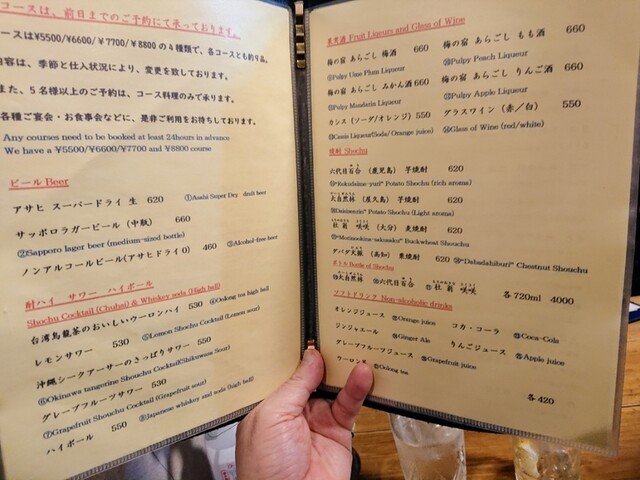 コースは、前日までのご予約にて承っております。
コースは¥5500/¥6600/￥7700/￥8800の４種類で、各コースとも約９品。
内容は、季節と仕入状況により、変更を致しております。
また、５名様以上のご予約は、コース料理のみで承ります。
各種ご宴会・お食事会などに、是非ご利用をお待ちしております。
Any courses need to be booked at least 24hours in advance
We have a ¥5500/¥6600/¥7700 and ¥8800 course
ビール Beer
アサヒ スーパードライ 生 620 ①Asahi Super Dry draft beer
サッポロラガービール（中瓶） 660
②Sapporo lager beer (medium-sized bottle)
ノンアルコールビール(アサヒドライ0) 460 ③Alcohol-free beer
酎ハイ サワー ハイボール
Shochu Cocktail (Chuhai) & Whiskey soda (High ball)
台湾烏龍茶のおいしいウーロンハイ 530 ④Oolong tea high ball
レモンサワー 530 ⑤Lemon Shochu Cocktail (Lemon sour)
沖縄シークアーサーのさっぱりサワー 550
⑥Okinawa tangerine Shouchu Cocktail(Shikuwasa Sour)
グレープフルーツサワー 530
⑦Grapefruit Shochu Cocktail (Grapefruit sour)
ハイボール 550 ⑧Japanese whiskey and soda (high ball)
果実酒 Fruit Liqueurs and Glass of Wine
梅の宿 あらごし 梅酒 660
⑨Pulpy Ume Plum Liqueur
梅の宿 あらごし もも酒 660
⑩Pulpy Peach Liqueur
梅の宿 あらごし みかん酒 660
⑪Pulpy Mandarin Liqueur
梅の宿 あらごし りんご酒 660
⑫Pulpy Apple Liqueur
カシス (ソーダ/オレンジ) 550
⑬Cassis Liqueur(Soda/ Orange juice)
グラスワイン（赤／白） 550
⑭Glass of Wine (red/white)
焼酎 Shochu
六代目百合 （鹿児島） 芋焼酎 620
⑮"Rokudaime-yuri" Potato Shochu (rich aroma)
大自然林 （屋久島） 芋焼酎 620
Potato Shochu (Light aroma)
杜翁 咲咲 （大分） 麦焼酎 620
Buckwheat Shouchu
ダバダ火振 （高知） 栗焼酎 620 ⑱"Dabadahiburi" Chestnut Shouchu
ボトル Bottle of Shochu
大自然林 六代目百合 杜翁 咲咲 各720ml 4000
ソフトドリンク Non-alcoholic drinks
オレンジジュース Orange juice コカ・コーラ Coca-Cola
ジンジャエール Ginger Ale りんごジュース Apple juice
グレープフルーツジュース Grapefruit juice
ウーロン茶 Oolong tea
各420